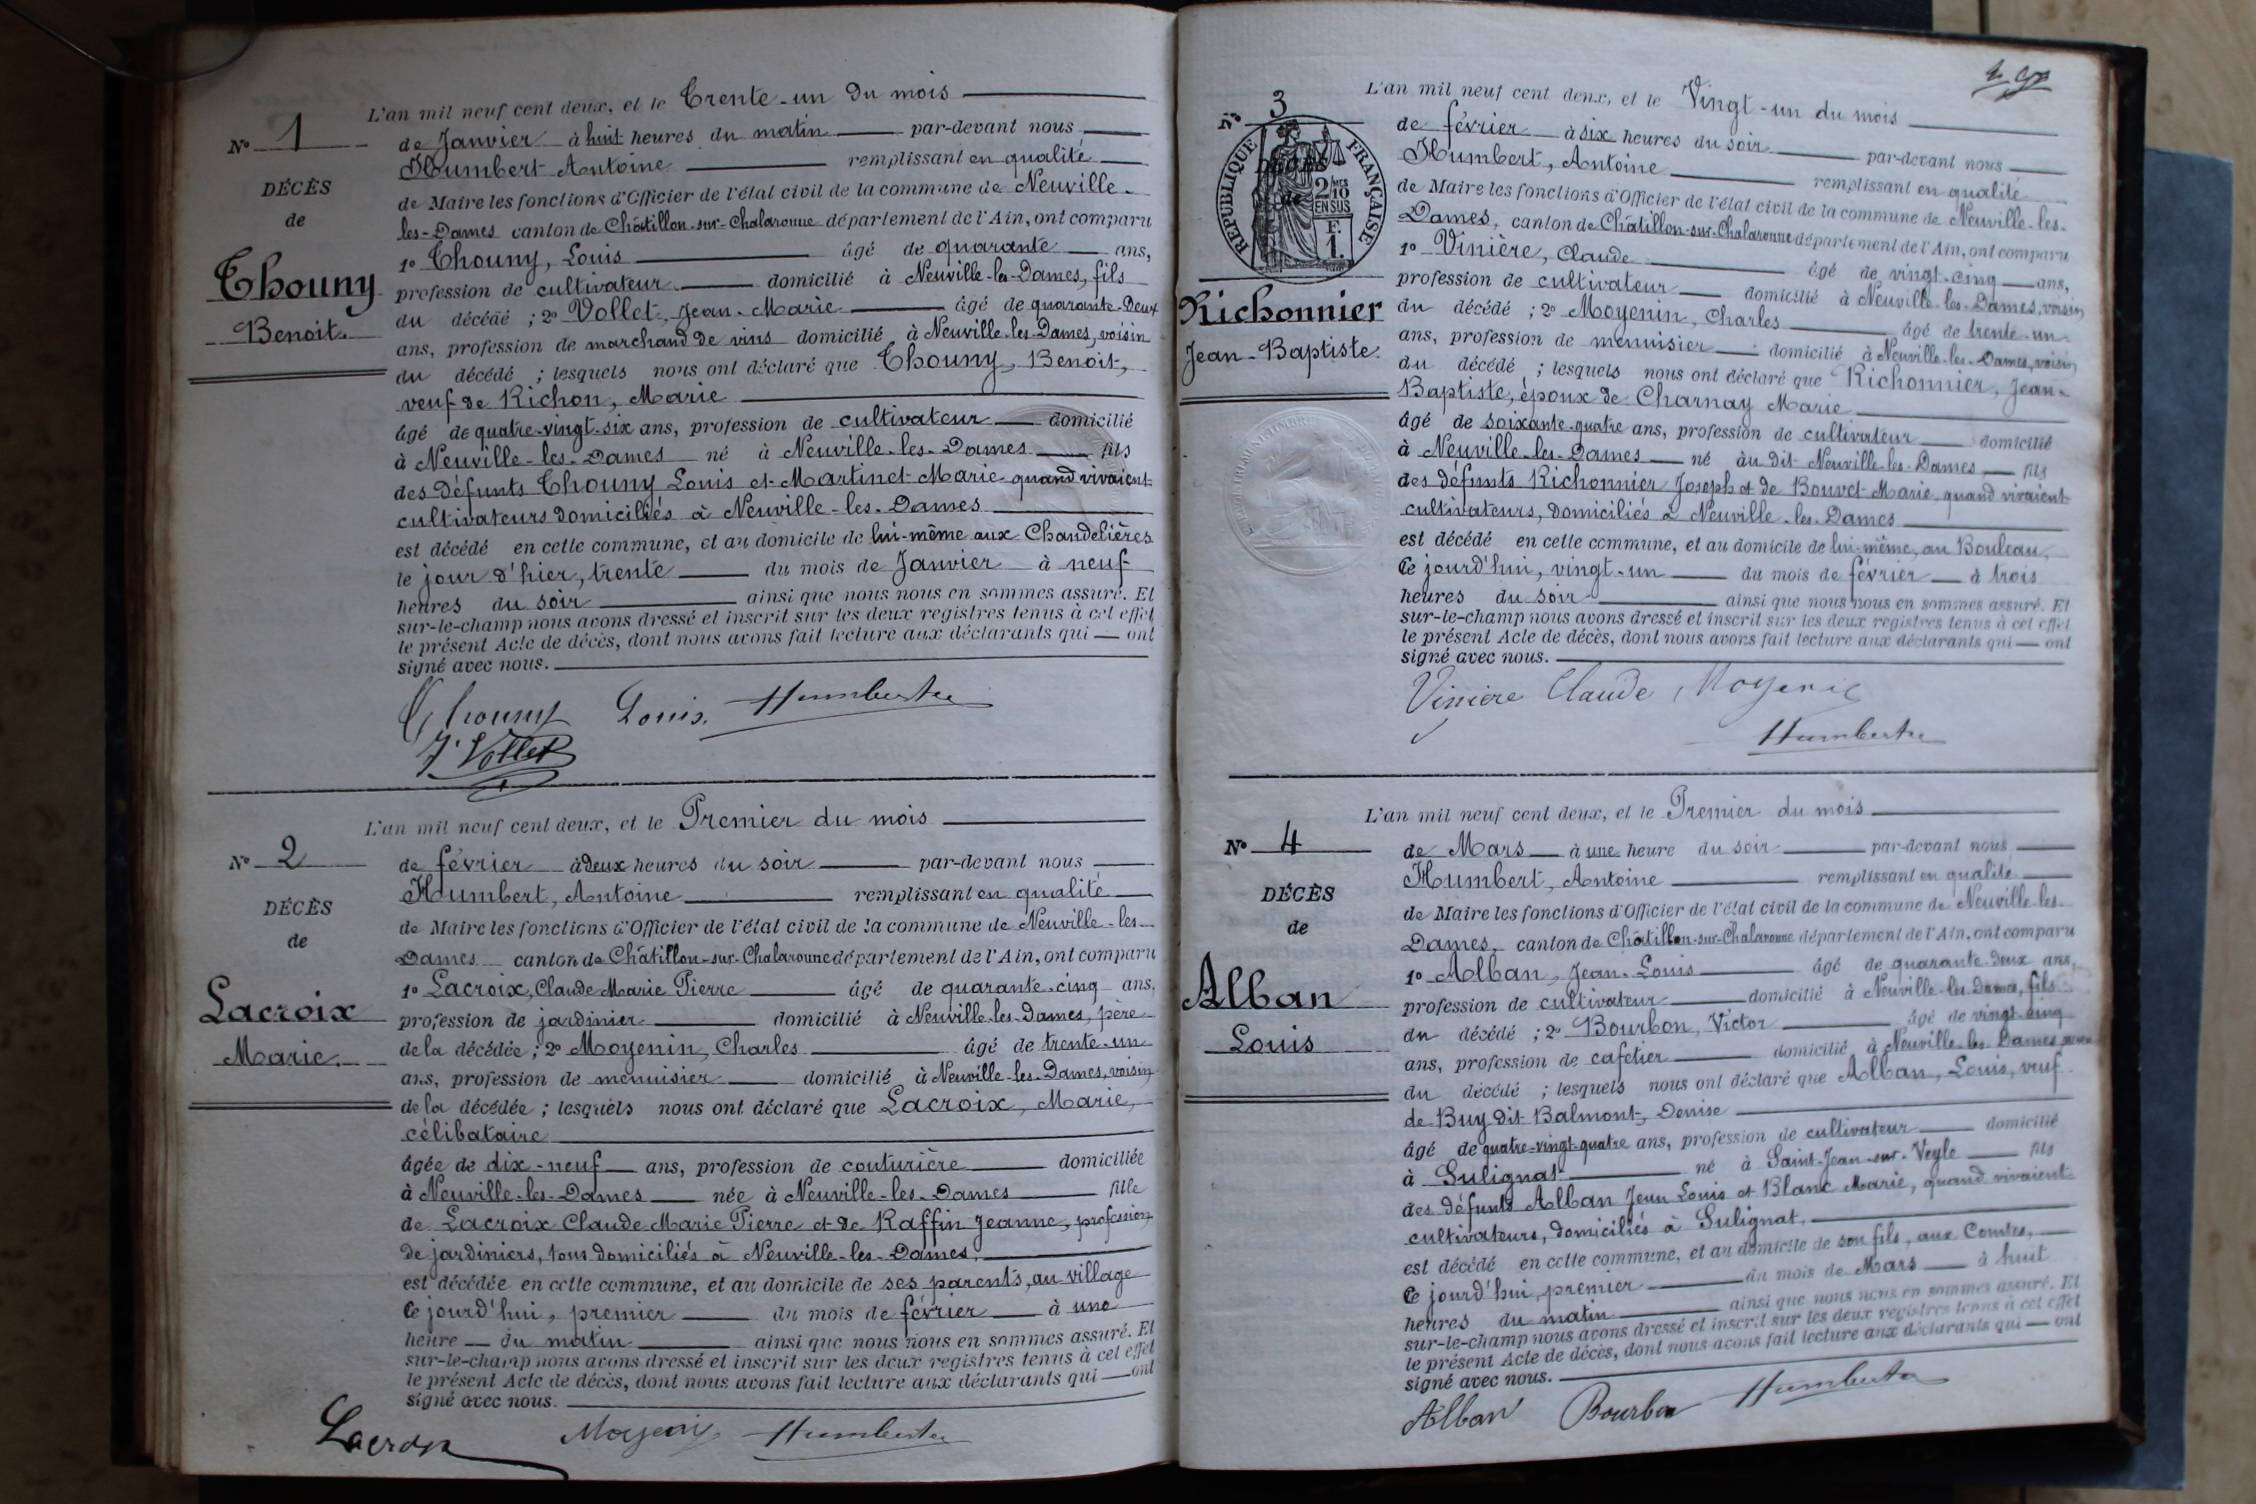 L'an mil neuf cent deux, et le Trente-un du mois
N° 1
de Janvier à huit heures du matin par-devant nous
Humbert Antoine remplissant en qualité
DÉCÈS
de Maire les fonctions d'Officier de l'état civil de la commune de Neuville-
de
les-Dames canton de Châtillon-sur-Chalaronne département de l'Ain, ont comparu
1° Thouny, Louis âgé de quarante ans,
Thouny
profession de cultivateur domicilié à Neuville-les-Dames, fils
du décédé ; 2° Vollet, Jean-Marie âgé de quarante-Deux
Benoit.
ans, profession de marchand de vins domicilié à Neuville-les-Dames, voisin
du décédé ; lesquels nous ont déclaré que Thouny, Benoit,
veuf de Richon, Marie
âgé de quatre-vingt-six ans, profession de cultivateur domicilié
à Neuville-les-Dames né à Neuville-les-Dames fils
des défunts Thouny Louis et Martinet Marie quand vivaient
cultivateurs domiciliés à Neuville-les-Dames
est décédé en cette commune, et au domicile de lui-même aux Chandelières
le jour d'hier, trente du mois de Janvier à neuf
heures du soir ainsi que nous nous en sommes assuré. Et
sur-le-champ nous avons dressé et inscrit sur les deux registres tenus à cet effet
le présent Acte de décès, dont nous avons fait lecture aux déclarants qui ont
signé avec nous.
Thouny Louis. Humbert
J. Vollet
L'an mil neuf cent deux, et le Premier du mois
N° 2
de février à deux heures du soir par-devant nous
Humbert, Antoine remplissant en qualité
DÉCÈS
de Maire les fonctions d'Officier de l'état civil de la commune de Neuville-les-
de
Dames canton de Châtillon-sur-Chalaronne département de l'Ain, ont comparu
1° Lacroix, Claude Marie Pierre âgé de quarante-cinq ans,
Lacroix
profession de jardinier domicilié à Neuville-les-Dames, père
Marie.
de la décédée ; 2° Moyenin, Charles âgé de trente-un
ans, profession de menuisier domicilié à Neuville-les-Dames, voisin
de la décédée ; lesquels nous ont déclaré que Lacroix, Marie,
célibataire
âgée de dix-neuf ans, profession de couturière domiciliée
à Neuville-les-Dames née à Neuville-les-Dames fille
de Lacroix Claude Marie Pierre et de Raffin Jeanne, profession
de jardiniers, tous domiciliés à Neuville-les-Dames,
est décédée en cette commune, et au domicile de ses parents, au village
Ce jourd'hui, premier du mois de février à une
heure du matin ainsi que nous nous en sommes assuré. Et
sur-le-champ nous avons dressé et inscrit sur les deux registres tenus à cet effet
le présent Acte de décès, dont nous avons fait lecture aux déclarants qui ont
signé avec nous.
Lacroix Moyenin Humbert
L'an mil neuf cent deux, et le Vingt-un du mois
N° 3
de février à six heures du soir par-devant nous
Humbert, Antoine remplissant en qualité
RÉPUBLIQUE FRANÇAISE
2/10 EN SUS
F. 1.
de Maire les fonctions d'Officier de l'état civil de la commune de Neuville-les-
Dames, canton de Châtillon-sur-Chalaronne département de l'Ain, ont comparu
1° Vinière, Claude âgé de vingt-cinq ans,
profession de cultivateur domicilié à Neuville-les-Dames, voisin
Richonnier
du décédé ; 2° Moyenin, Charles âgé de trente-un
Jean-Baptiste.
ans, profession de menuisier domicilié à Neuville-les-Dames, voisin
du décédé ; lesquels nous ont déclaré que Richonnier, Jean-
Baptiste, époux de Charnay Marie
âgé de soixante-quatre ans, profession de cultivateur domicilié
à Neuville-les-Dames né au dit Neuville-les-Dames fils
des défunts Richonnier Joseph et de Bouvet Marie, quand vivaient
cultivateurs, domiciliés à Neuville-les-Dames
est décédé en cette commune, et au domicile de lui-même, au Bouleau,
Ce jourd'hui, vingt-un du mois de février à trois
heures du soir ainsi que nous nous en sommes assuré. Et
sur-le-champ nous avons dressé et inscrit sur les deux registres tenus à cet effet
le présent Acte de décès, dont nous avons fait lecture aux déclarants qui ont
signé avec nous.
Viniere Claude Moyenin
Humbert
L'an mil neuf cent deux, et le Premier du mois
N° 4
de Mars à une heure du soir par-devant nous
Humbert, Antoine remplissant en qualité
DÉCÈS
de Maire les fonctions d'Officier de l'état civil de la commune de Neuville-les-
de
Dames, canton de Châtillon-sur-Chalaronne département de l'Ain, ont comparu
1° Alban, Jean-Louis âgé de quarante-deux ans,
Alban
profession de cultivateur domicilié à Neuville-les-Dames, fils
du décédé ; 2° Bourbon, Victor âgé de vingt-cinq
Louis
ans, profession de cafetier domicilié à Neuville-les-Dames
du décédé ; lesquels nous ont déclaré que Alban, Louis, veuf
de Buy dit Balmont, Denise
âgé de quatre-vingt-quatre ans, profession de cultivateur domicilié
à Sulignat né à Saint-Jean-sur-Veyle fils
des défunts Alban Jean Louis et Blanc Marie, quand vivaient
cultivateurs, domiciliés à Sulignat,
est décédé en cette commune, et au domicile de son fils, aux Comtes,
Ce jourd'hui, premier du mois de Mars à huit
heures du matin ainsi que nous nous en sommes assuré. Et
sur-le-champ nous avons dressé et inscrit sur les deux registres tenus à cet effet
le présent Acte de décès, dont nous avons fait lecture aux déclarants qui ont
signé avec nous.
Alban Bourbon Humbert